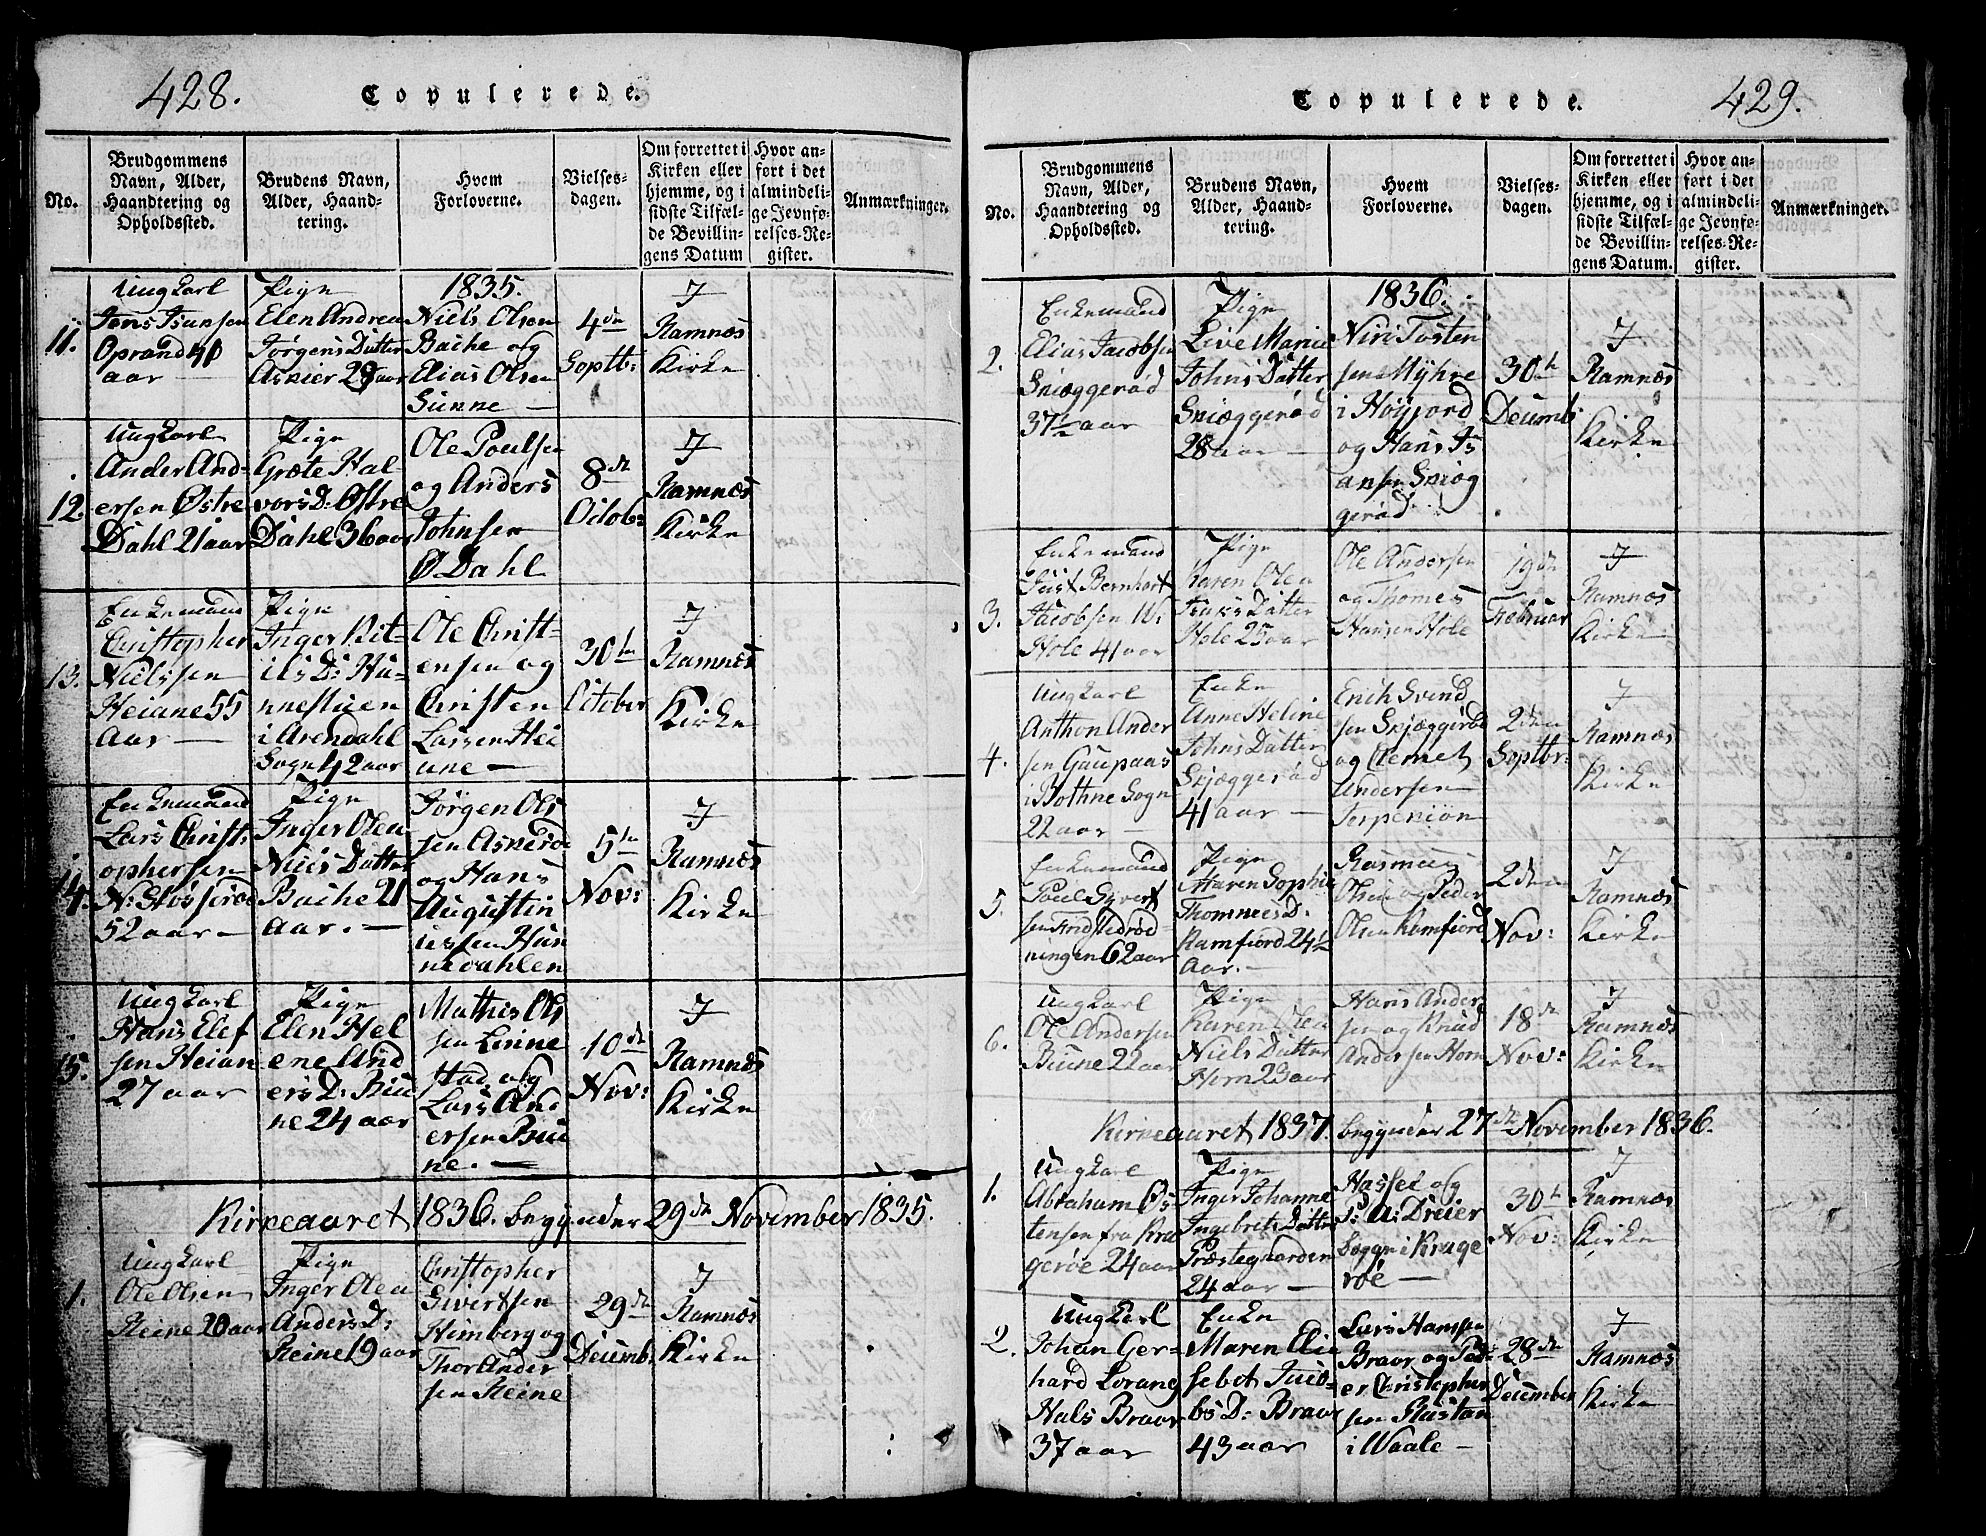 428.
Copulerede.
No.
Brudgommens
Navn, Alder,
Haandtering og
Opholdssted.
Brudens Navn,
Alder, Haand-
tering.
Hvem
Forloverne.
Vielses-
dagen.
Om forrettet i
Kirken eller
hjemme, og i
sidste Tilfæl-
de Bevillin-
gens Datum
Hvor an-
ført i det
almindeli-
ge Jevnfø-
relses-Re-
gister.
Anmærkninger.
11.
Ungkarl
Jens
Oprand
aar
Pige
Elen Andrea
Jørgens Datter
Askier 29 aar
1835.
Niels Olsen
Bache og
Elias Olsen
Sunne
4de
Septb:
I
Ramnæs
Kirke
12.
Ungkarl
Ander And-
ersen Østre
Dahl 21 aar
Pige
Grete Hal-
vors D: Østre
Dahl 36 aar
Ole Poulsen
og Anders
Johnsen
Ø Dahl
8de
Octob:
I
Ramnæs
Kirke
13.
Enkemand
Christopher
Nielssen
Heiane 55
Aar
Pige
Inger Kit-
ils D: Hu-
nnestuen
i Arendahl
Sogn 42 aar
Ole Christ-
ensen og
Christen
Larsen Hei
ane
30te
October
I
Ramnæs
Kirke
14.
Enkemand
Lars Christ-
ophersen
N:
52 aar
Pige
Inger Olea
Niels Datter
Bache 21
aar.
Jørgen Ols
sen Askerød
og Hans
Augustin
Hun
nevahlen
5te
Nov:
I
Ramnæs
Kirke
15.
Ungkarl
Hans Elef
sen Heian
27 aar
Pige
Elen Hel
ene And
ers D: Buu
ne 24 aar
Mathis Ols
sen Linne
stad og
Lars And
ersen Buu
ne.
10de
Nov:
I
Ramnæs
Kirke
Kirkeaaret 1836. begynder 29de November 1835.
1.
Ungkarl
Ole Olsen
Reine 20 aar
Pige
Inger Olea
Anders D:
Reine 19 aar
Christopher
Sivertsen
Himberg og
Thor Ander
sen Reine
29de
Decemb:
I
Ramnæs
Kirke
Copulerede.
429.
No.
Brudgommens
Navn, Alder,
Haandtering og
Opholdssted.
Brudens Navn,
Alder, Haand-
tering.
Hvem
Forloverne.
Vielses-
dagen.
Om forrettet i
Kirken eller
hjemme, og i
sidste Tilfæl-
de Bevillin-
gens Datum.
Hvor an-
ført i det
almindeli-
ge Jevnfø-
relses-Re-
gister.
Anmærkninger.
2.
Enkemand
Elias Jacobsen
Sniæggerød
37½ aar
Pige
Live Marie
Johns Datter
Sniæggerød
28 aar
1836.
Niri Tosten
sen Myhre
i Høyjord
og Hans Is
aksen Sniæg
gerød
30te
Decemb
I
Ramnæs
Kirke
3.
Enkemand
Just Bernhart
Jacobsen W:
Hole 41 aar
Pige
Karen Olea
Isaks Datter
Hole 25 aar
Ole Andersen
og Thomes
Hansen Hole
19de
Februar
I
Ramnæs
Kirke
4.
Ungkarl
Anthon Ander
sen Gaupaas
i Bothne Sogn
22 aar
Enke
Anne Heline
Johns Datter
Skjæggerød
41 aar
Erich Svend
sen Skjæggerød
og Clemet
Andersen
2den
Septbr:
I
Ramnæs
Kirke
5.
Enkemand
Poul Syvert
sen
ningen 62 aar
Pige
Maren Sophie
Thommes D.
Ramfiord 24½
Aar.
Rasmus
Olsen og Peder
Olsen Ramfiord
2den
Nov:
I
Ramnæs
Kirke
6.
Ungkarl
Ole Andersen
Buune 22 aar
Pige
Karen Olea
Niels Datter
Horn 23 aar
Hans Ander
sen og Knud
Andersen Horn
18de
Nov:
I
Ramnæs
Kirke
Kirkeaaret 1837. begynder 27de November 1836.
1.
Ungkarl
Abraham Øs
tensen fra Kra
gerøe 24 aar
Pige
Inger Johanne
Ingebrets Datter
Præstegaarden
24 aar
Hassel og
P: A: Dreier
begge i Krage
røe
30te
Nov:
I
Ramnæs
Kirke
2.
Ungkarl
Johan Ger-
hard Lorang
Hals Bravr
37 aar
Enke
Maren Elie
sebet Jaco-
bs D: Bravr
43 aar
Lars Hansen
Bravr og Ped-
er Christopher
sen Rastan
i Waale
28de
December
I
Ramnæs
Kirke